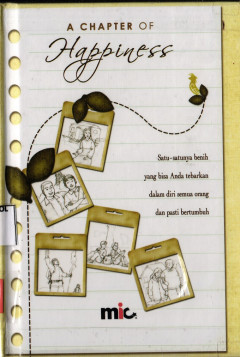 A CHAPTER OF
Happiness
Satu-satunya benih
yang bisa Anda tebarkan
dalam diri semua orang
dan pasti bertumbuh
mic